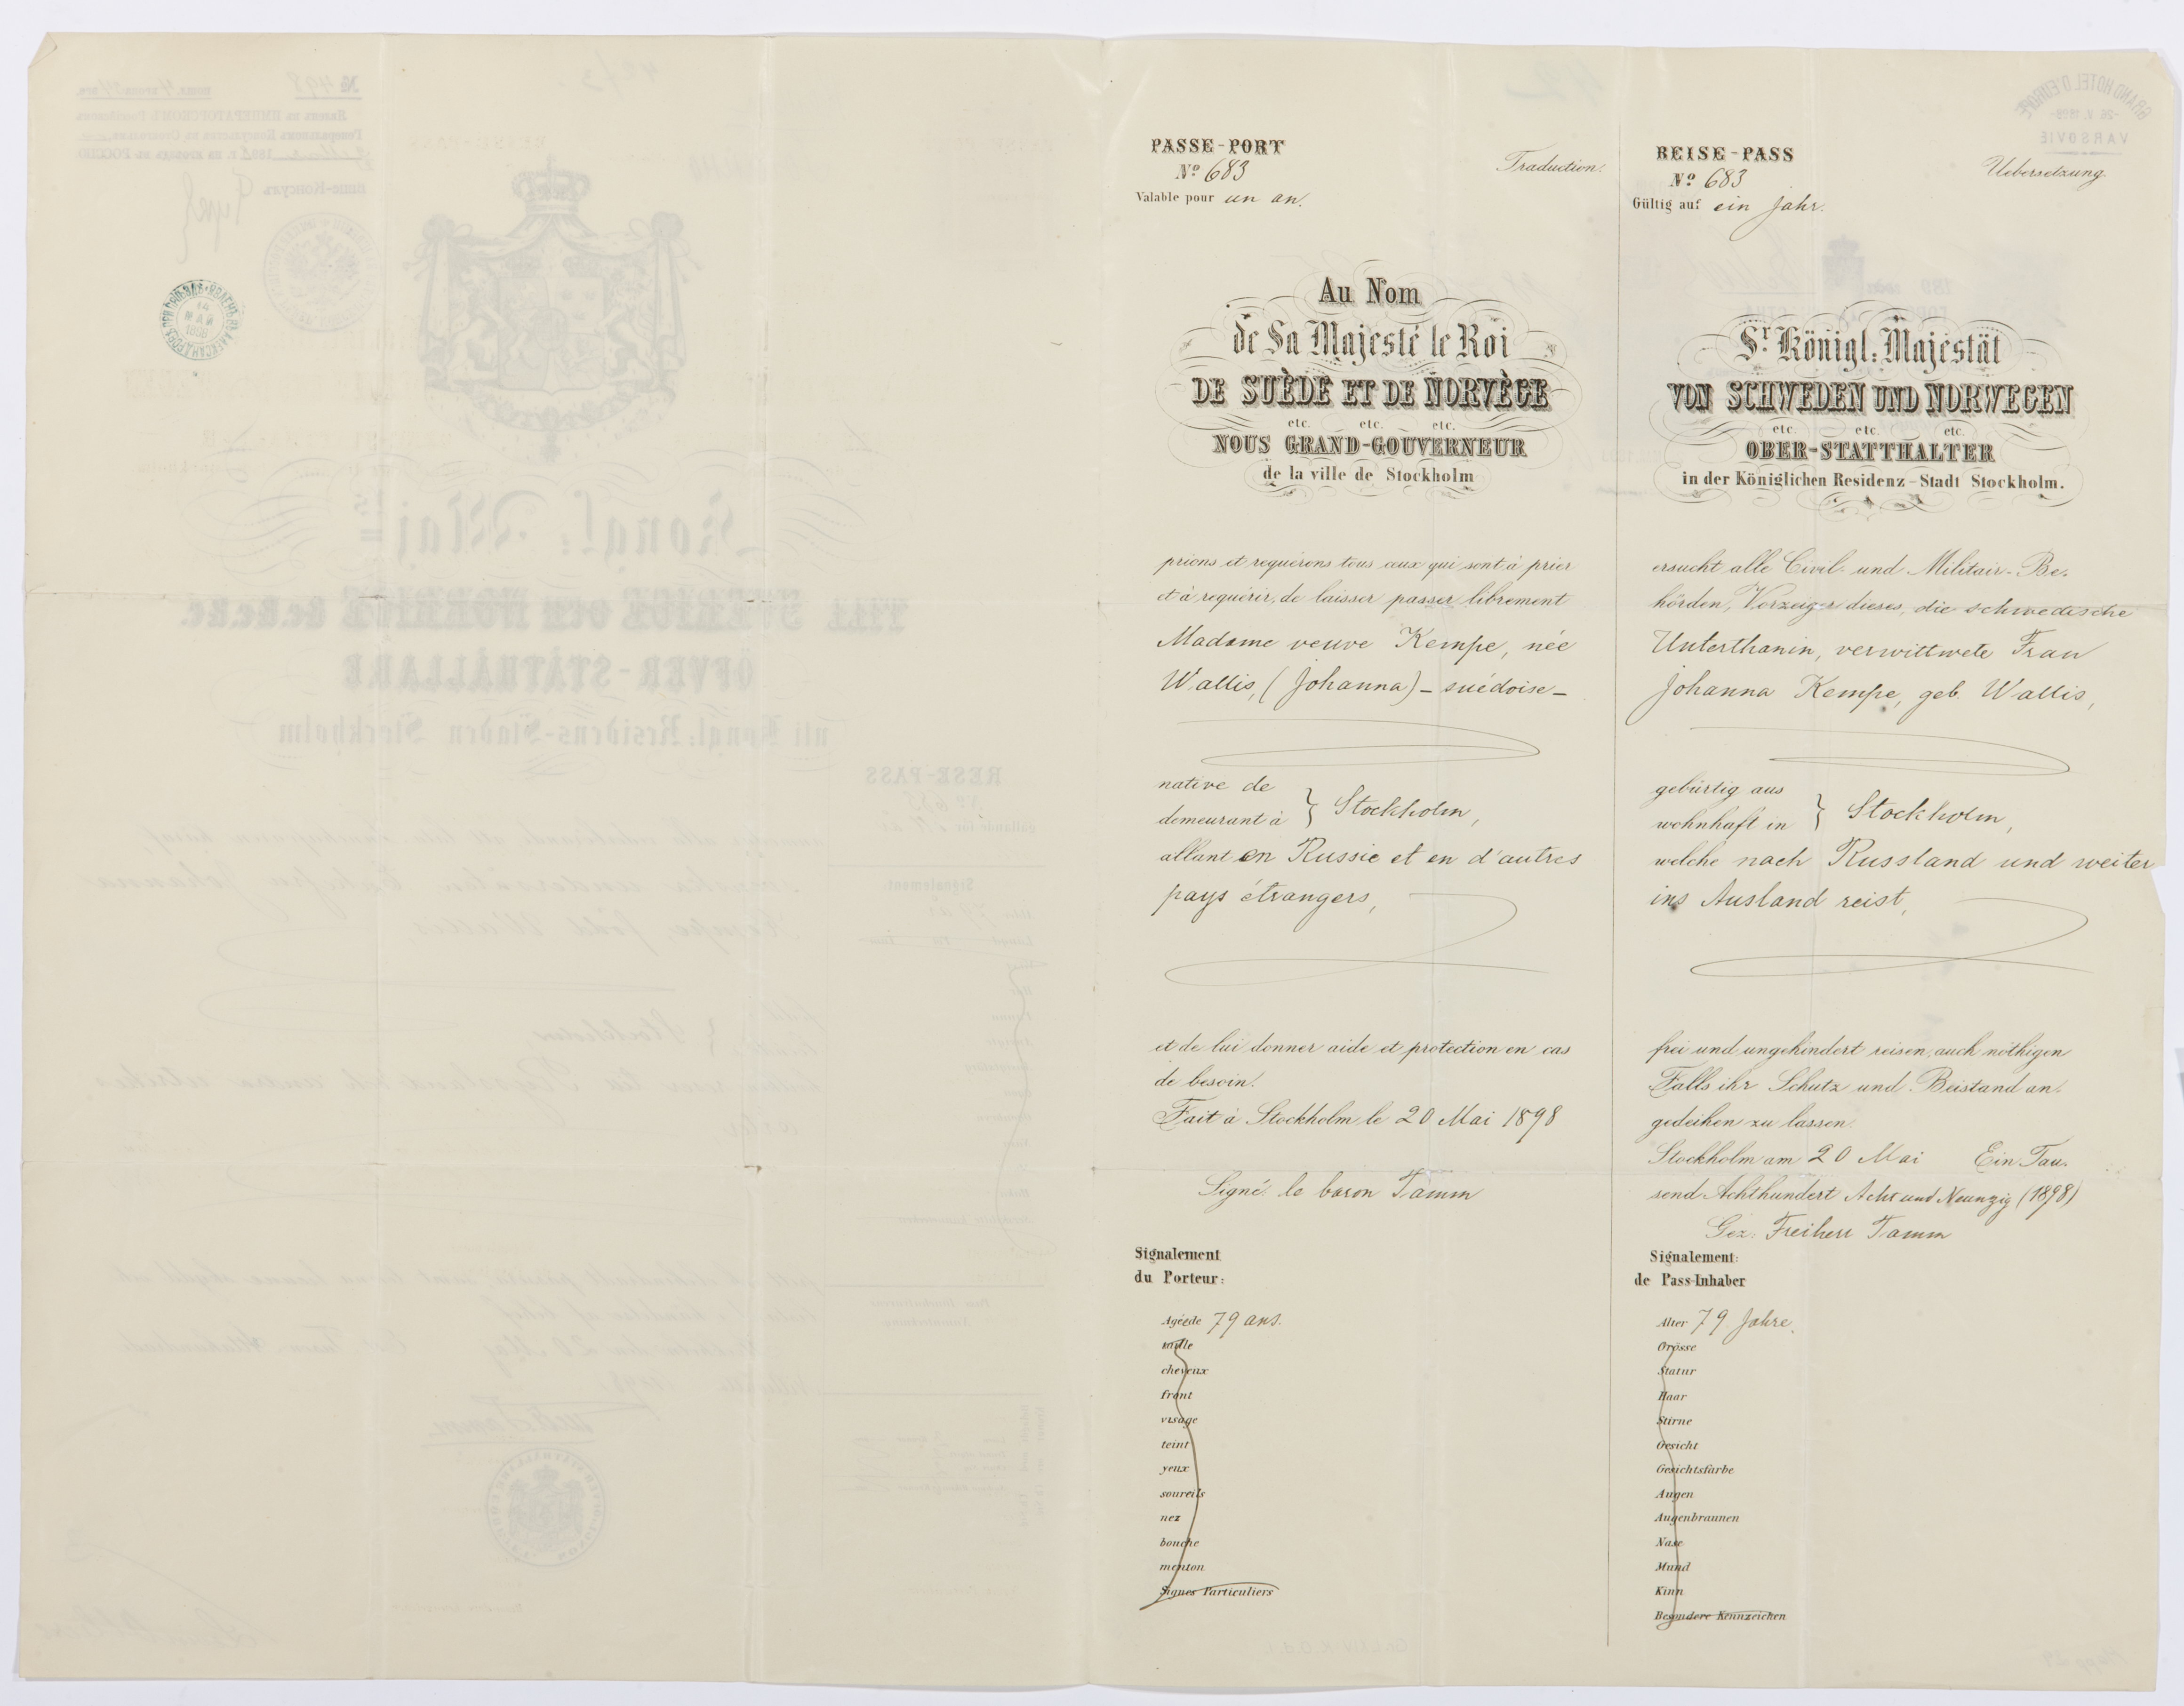 PASSE-PORT
Nº 683
Traduction.
Valable pour un an.
Au Nom
de Sa Majesté le Roi
DE SUÈDE ET DE NORVÈGE
etc. etc. etc.
NOUS GRAND-GOUVERNEUR
de la ville de Stockholm
prions et requérons tous ceux qui sont à prier
et à requérir, de laisser passer librement
Madame veuve Kempe, née
Wallis, (Johanna) – suédoise –
native de
demeurant à } Stockholm,
allant en Russie et en d'autres
pays étrangers,
et de lui donner aide et protection en cas
de besoin.
Fait à Stockholm le 20 Mai 1898
Signé: le baron Tamm
Signalement
du Porteur:
Agéede 79 ans.
taille
cheveux
front
visage
teint
yeux
soureils
nez
bouche
menton
Signes Particuliers
REISE-PASS
Nº 683
Uebersetzung.
Gültig auf ein Jahr.
Sr Königl: Majestät
VON SCHWEDEN UND NORWEGEN
etc. etc. etc.
OBER-STATTHALTER
in der Königlichen Residenz-Stadt Stockholm.
ersucht alle Civil- und Militair-Be-
hörden, Vorzeiger dieses, die schwedische
Unterthanin, verwittwete Frau
Johanna Kempe, geb. Wallis,
gebürtig aus
wohnhaft in } Stockholm,
welche nach Russland und weiter
ins Ausland reist,
frei und ungehindert reisen, auch nöthigen
Falls ihr Schutz und Beistand an-
gedeihen zu lassen.
Stockholm am 20 Mai Ein Tau-
send Achthundert Acht und Neunzig (1898)
Gez: Freiherr Tamm
Signalement:
de Pass-Inhaber
Alter 79 Jahre.
Grösse
Statur
Haar
Stirne
Gesicht
Gesichtsfarbe
Augen
Augenbraunen
Nase
Mund
Kinn
Besondere Kennzeichen
GRAND HOTEL D'EUROPE
VARSOVIE
14
МАЙ
1898